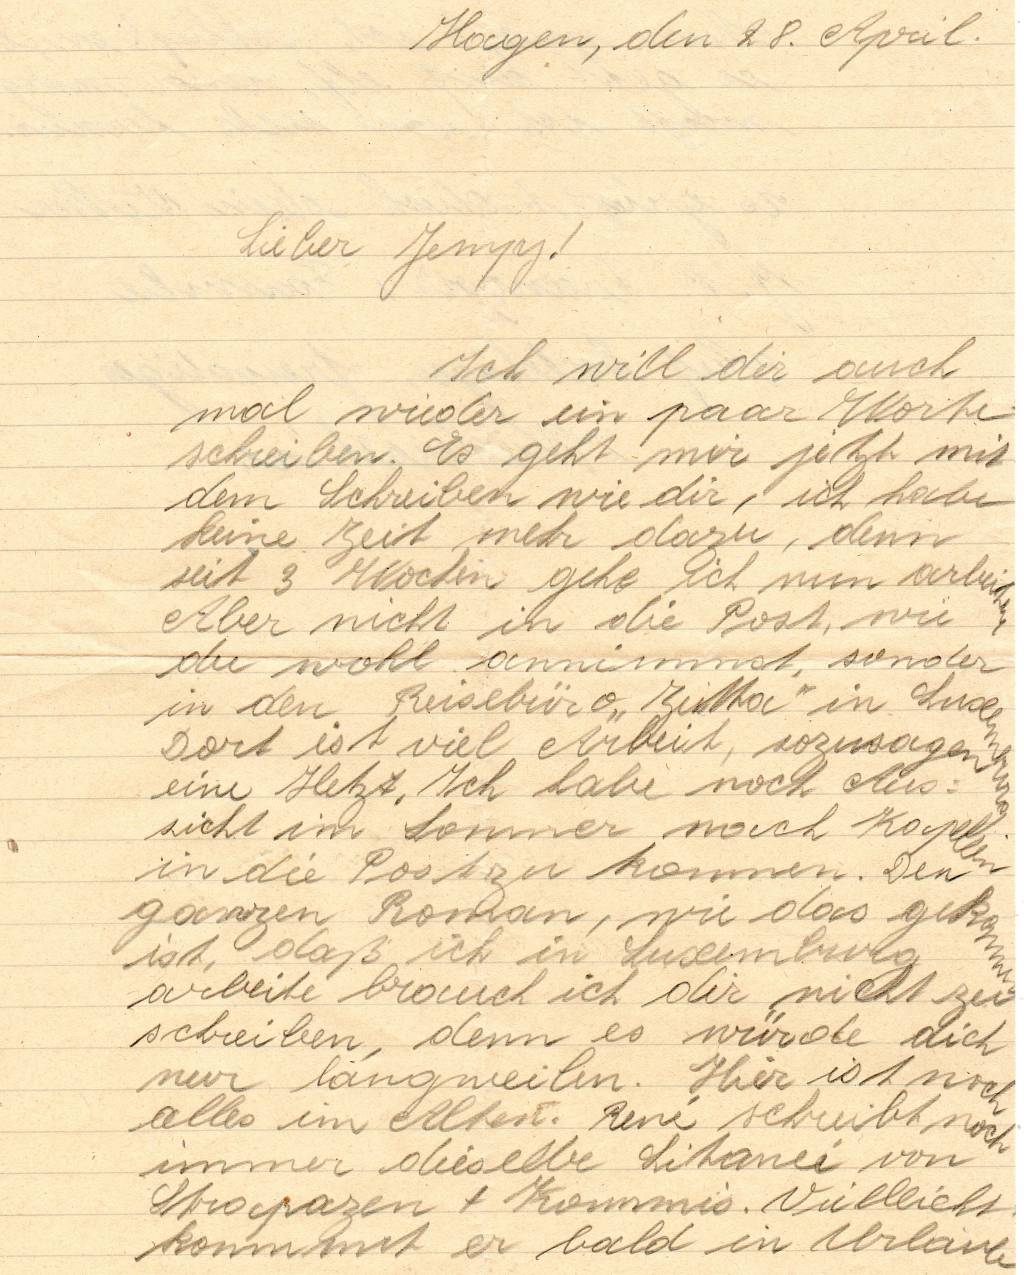 Hagen, den 28. April.
Lieber Jempy!
Ich will dir auch
mal wieder ein paar Worte
schreiben. Es geht mir jetzt mit
dem Schreiben wie dir, ich habe
keine Zeit mehr dazu, denn
seit 3 Wochen gehe ich nun arbeiten
Aber nicht in die Post, wie
du wohl annimmst, sonder
in den Reisebüro „Zitha" in Luxemburg
Dort ist viel Arbeit, sozusagen
eine Hetz. Ich habe noch Aus=
sicht im Sommer nach Kapellen
in die Post zu kommen. Den
ganzen Roman, wie das gekommen
ist, daß ich in Luxemburg
arbeite brauch ich dir nicht zu
schreiben, denn es würde dich
nur langweilen. Hier ist noch
alles im Alten. René schreibt noch
immer dieselbe Litanei von
Strapazen + Kommis. Vielleicht
kommt er bald in Urlaub